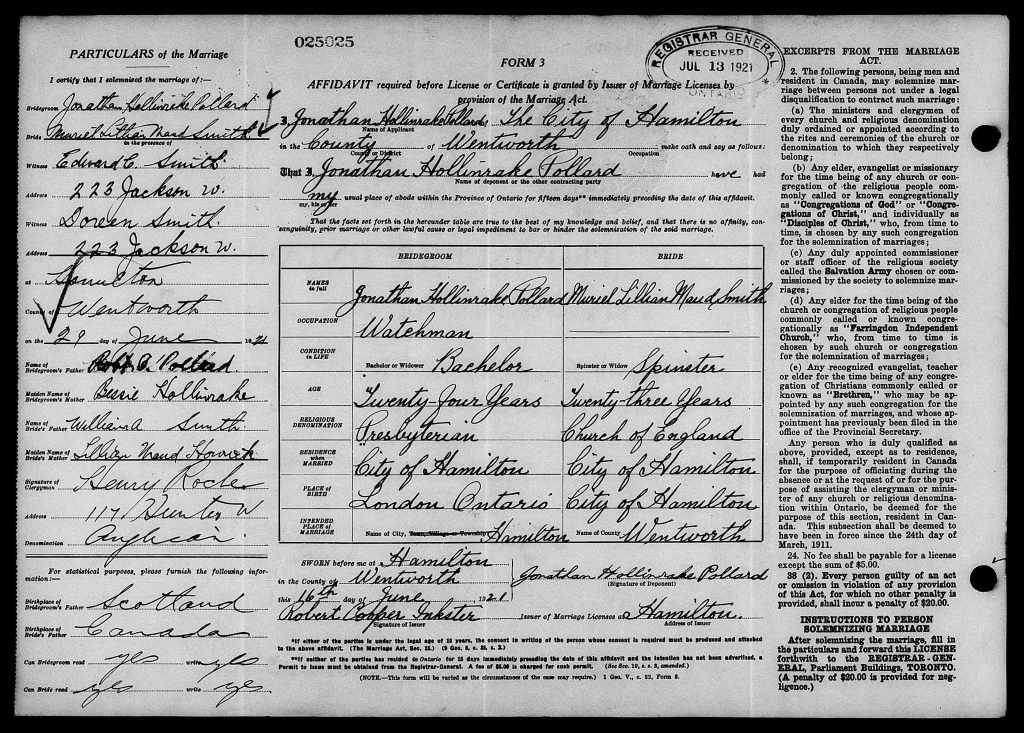 025025
REGISTRAR GENERAL
RECEIVED
JUL 13 1921
ONTARIO
PARTICULARS of the Marriage
I certify that I solemnized the marriage of:—
Bridegroom Jonathan Hollinrake Pollard
Bride Muriel Lillian Maud Smith
in the presence of
Witness Edward C. Smith
Address 223 Jackson W.
Witness Doreen Smith
Address 223 Jackson W.
at Hamilton
County of Wentworth
on the 29 day of June 1921
Name of Bridegroom's Father Robt Pollard
Maiden Name of Bridegroom's Mother Bessie Hollinrake
Name of Bride's Father William A Smith
Maiden Name of Bride's Mother Lillian Maud
Signature of Clergyman Henry
Address 117 Hunter W
Denomination Anglican
For statistical purposes, please furnish the following information:—
Birthplace of Bridegroom's Father Scotland
Birthplace of Bride's Father Canada
Can Bridegroom read yes write yes
Can Bride read yes write yes
FORM 3
AFFIDAVIT required before License or Certificate is granted by Issuer of Marriage Licenses by
provision of the Marriage Act.
I, Jonathan Hollinrake Pollard, The City of Hamilton
Name of Applicant
in the County of Wentworth make oath and say as follows:
County or District Occupation
That I Jonathan Hollinrake Pollard have had
Name of deponent or the other contracting party
my usual place of abode within the Province of Ontario for fifteen days** immediately preceding the date of this affidavit.
my, his or her
That the facts set forth in the hereunder table are true to the best of my knowledge and belief, and that there is no affinity, consanguinity, prior marriage or other lawful cause or legal impediment to bar or hinder the solemnization of the said marriage.
BRIDEGROOM BRIDE
NAMES in full Jonathan Hollinrake Pollard Muriel Lillian Maud Smith
OCCUPATION Watchman
CONDITION in LIFE Bachelor or Widower Bachelor Spinster or Widow Spinster
AGE Twenty-four Years Twenty-three Years
RELIGIOUS DENOMINATION Presbyterian Church of England
RESIDENCE WHEN MARRIED City of Hamilton City of Hamilton
PLACE OF BIRTH London Ontario City of Hamilton
INTENDED PLACE OF MARRIAGE Name of City, Town, Village or Township Hamilton Name of County Wentworth
SWORN before me at Hamilton
in the County of Wentworth Jonathan Hollinrake Pollard
(Signature of Deponent)
this 16th day of June 1921
Robert Cooper Inkster Issuer of Marriage Licenses Hamilton
Signature of Issuer Address of Issuer
*If either of the parties is under the legal age of 18 years, the consent in writing of the person whose consent is required must be produced and attached
to the above affidavit. (The Marriage Act, Sec. 15.)
**If neither of the parties has resided in Ontario for 15 days immediately preceding the date of this affidavit and the intention has not been advertised, a
Permit to issue must be obtained from the Registrar-General. A fee of $5.00 is charged for such permit. (See Sec. 19, s. s. 3, amended.)
(NOTE.—This form will be varied as the circumstances of the case may require.) 1 Geo. V., c. 32, Form 3.
EXCERPTS FROM THE MARRIAGE
ACT.
2. The following persons, being men and
resident in Canada, may solemnize
marriage between persons not under a legal
disqualification to contract such marriage:
(a) The ministers and clergymen of
every church and religious denomination
duly ordained or appointed according to
the rites and ceremonies of the church or
denomination to which they respectively
belong;
(b) Any elder, evangelist or missionary
for the time being of any church or con-
gregation of the religious people com-
monly called or known congregationally
as "Congregations of God" or "Congre-
gations of Christ," and individually as
"Disciples of Christ," who, from time to
time, is chosen by any such congregation
for the solemnization of marriages;
(c) Any duly appointed commissioner
or staff officer of the religious society
called the Salvation Army chosen or com-
missioned by the society to solemnize mar-
riages;
(d) Any elder for the time being of the
church or congregation of religious people
commonly called or known congre-
gationally as "Farringdon Independent
Church," who, from time to time is
chosen by such church or congregation
for the solemnization of marriages;
(e) Any recognized evangelist, teacher
or elder for the time being of any congre-
gation of Christians commonly called or
known as "Brethren," who may be ap-
pointed by any such congregation for the
solemnization of marriages, and whose ap-
pointment has previously been filed in the
office of the Provincial Secretary.
Any person who is duly qualified as
above, provided, except as to residence,
shall, if temporarily resident in Canada
for the purpose of officiating during the
absence or at the request of or for the pur-
pose of assisting the clergyman or minis-
ter of any church or religious denomina-
tion within Ontario, be deemed for the
purpose of this section, resident in Can-
ada. This subsection shall be deemed to
have been in force since the 24th day of
March, 1911.
24. No fee shall be payable for a license
except the sum of $5.00.
38 (2). Every person guilty of an act
or omission in violation of any provision
of this Act, for which no other penalty is
provided, shall incur a penalty of $20.00.
INSTRUCTIONS TO PERSON
SOLEMNIZING MARRIAGE
After solemnizing the marriage, fill in
the particulars and forward this LICENSE
forthwith to the REGISTRAR-GEN-
ERAL, Parliament Buildings, TORONTO.
(A penalty of $20.00 is provided for neg-
ligence.)